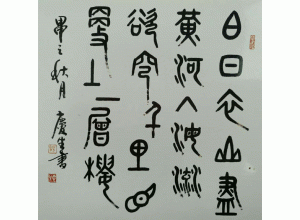 白日依山盡
黃河入海流
欲窮千里目
更上一層樓
秋月
慶生書